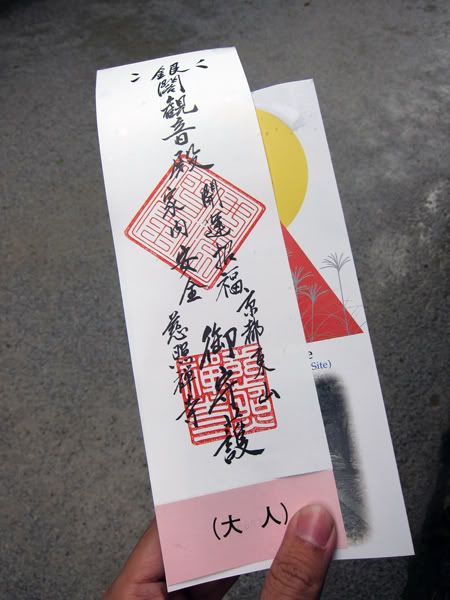 銀閣観音殿
開運招福
家内安全
御守護
京都東山
慈照禪寺
(大人)
Site)